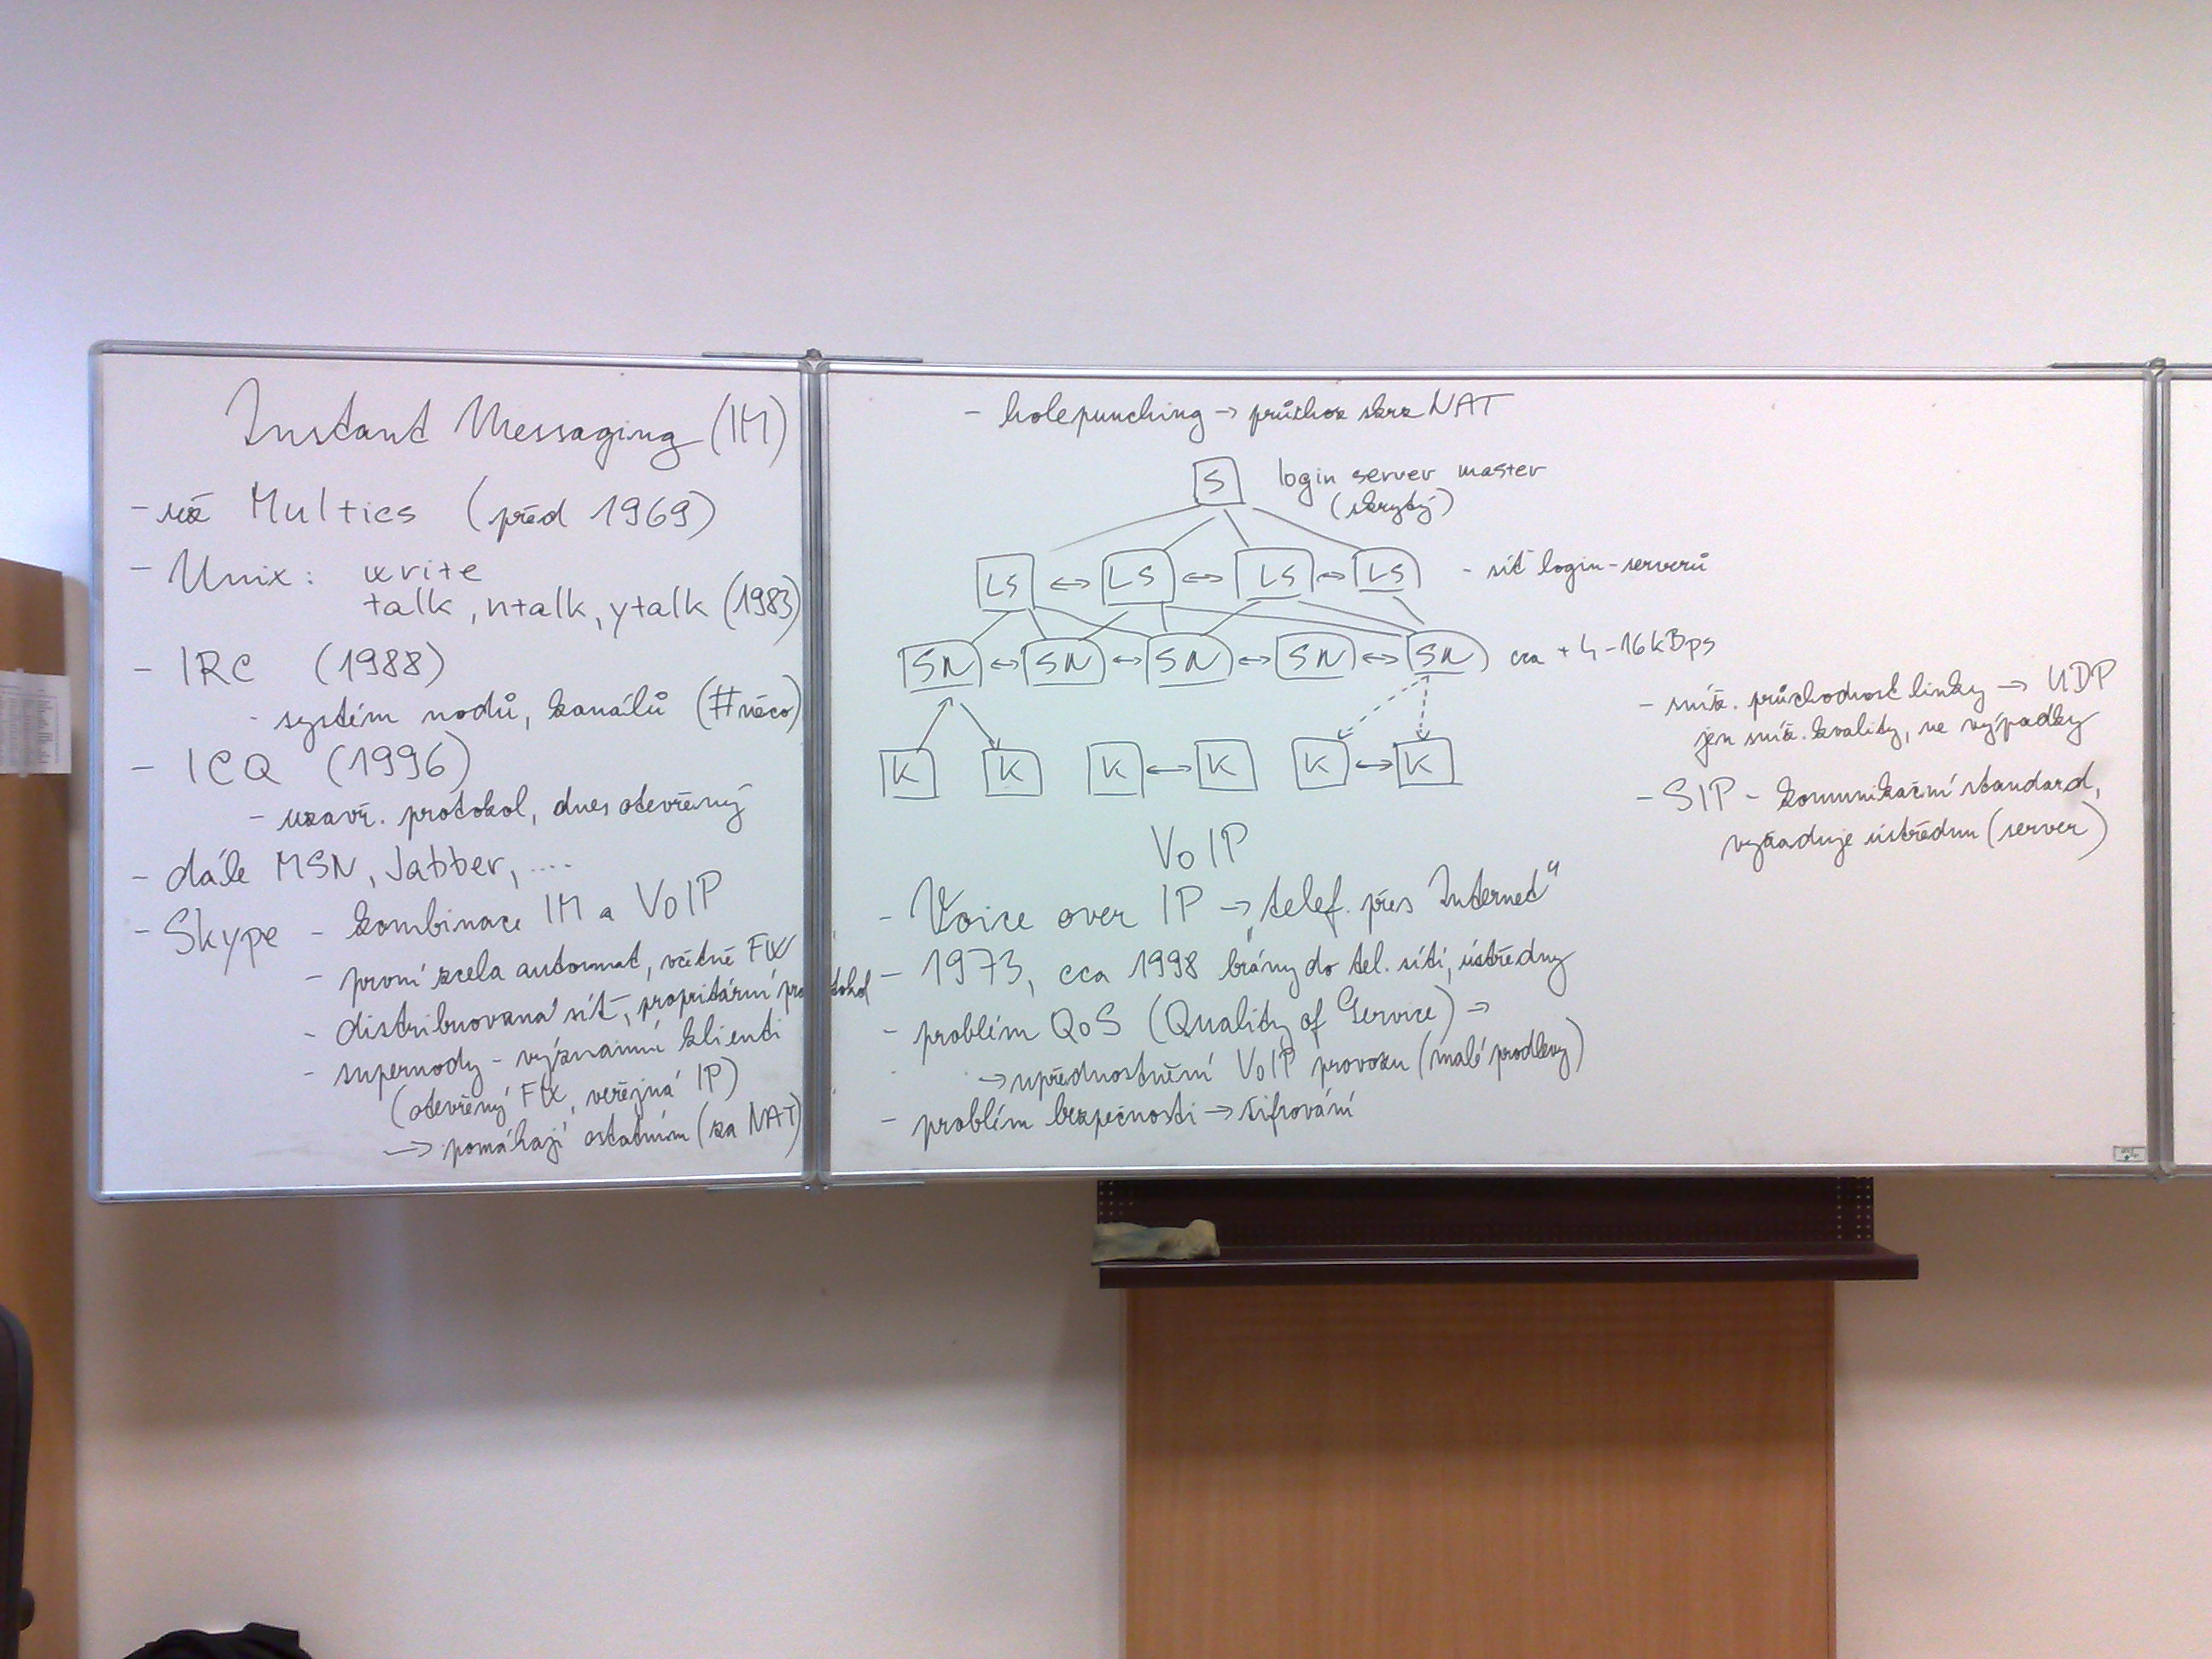 Instant Messaging (IM)
- už Multics (před 1969)
- Unix: write
talk, ntalk, ytalk (1983)
- IRC (1988)
- systém nodů, kanálů (#něco)
- ICQ (1996)
- uzavř. protokol, dnes otevřený
- dále MSN, Jabber, ....
- Skype - kombinace IM a VoIP
- první zcela automat, včetně FW
- distribuovaná síť, propritární protokol
- supernody - významní klienti
(otevřený FW, veřejná IP)
→ pomáhají ostatním (za NAT)
- holepunching → průchoz skrz NAT
S login server master
(skrytý)
LS ↔ LS ↔ LS ↔ LS - síť login-serverů
SN ↔ SN ↔ SN ↔ SN ↔ SN cca + 4-16kBps
K K K ↔ K K ↔ K
VoIP
- Voice over IP → „telef. přes Internet“
- 1973, cca 1998 brány do tel. sítí, ústředny
- problém QoS (Quality of Service) →
→ upřednostnění VoIP provozu (malé prodlevy)
- problém bezpečnosti → šifrování
- sníž. průchodnost linky → UDP
jen sníž. kvality, ne výpadky
- SIP - komunikační standard,
vyžaduje ústřednu (server)